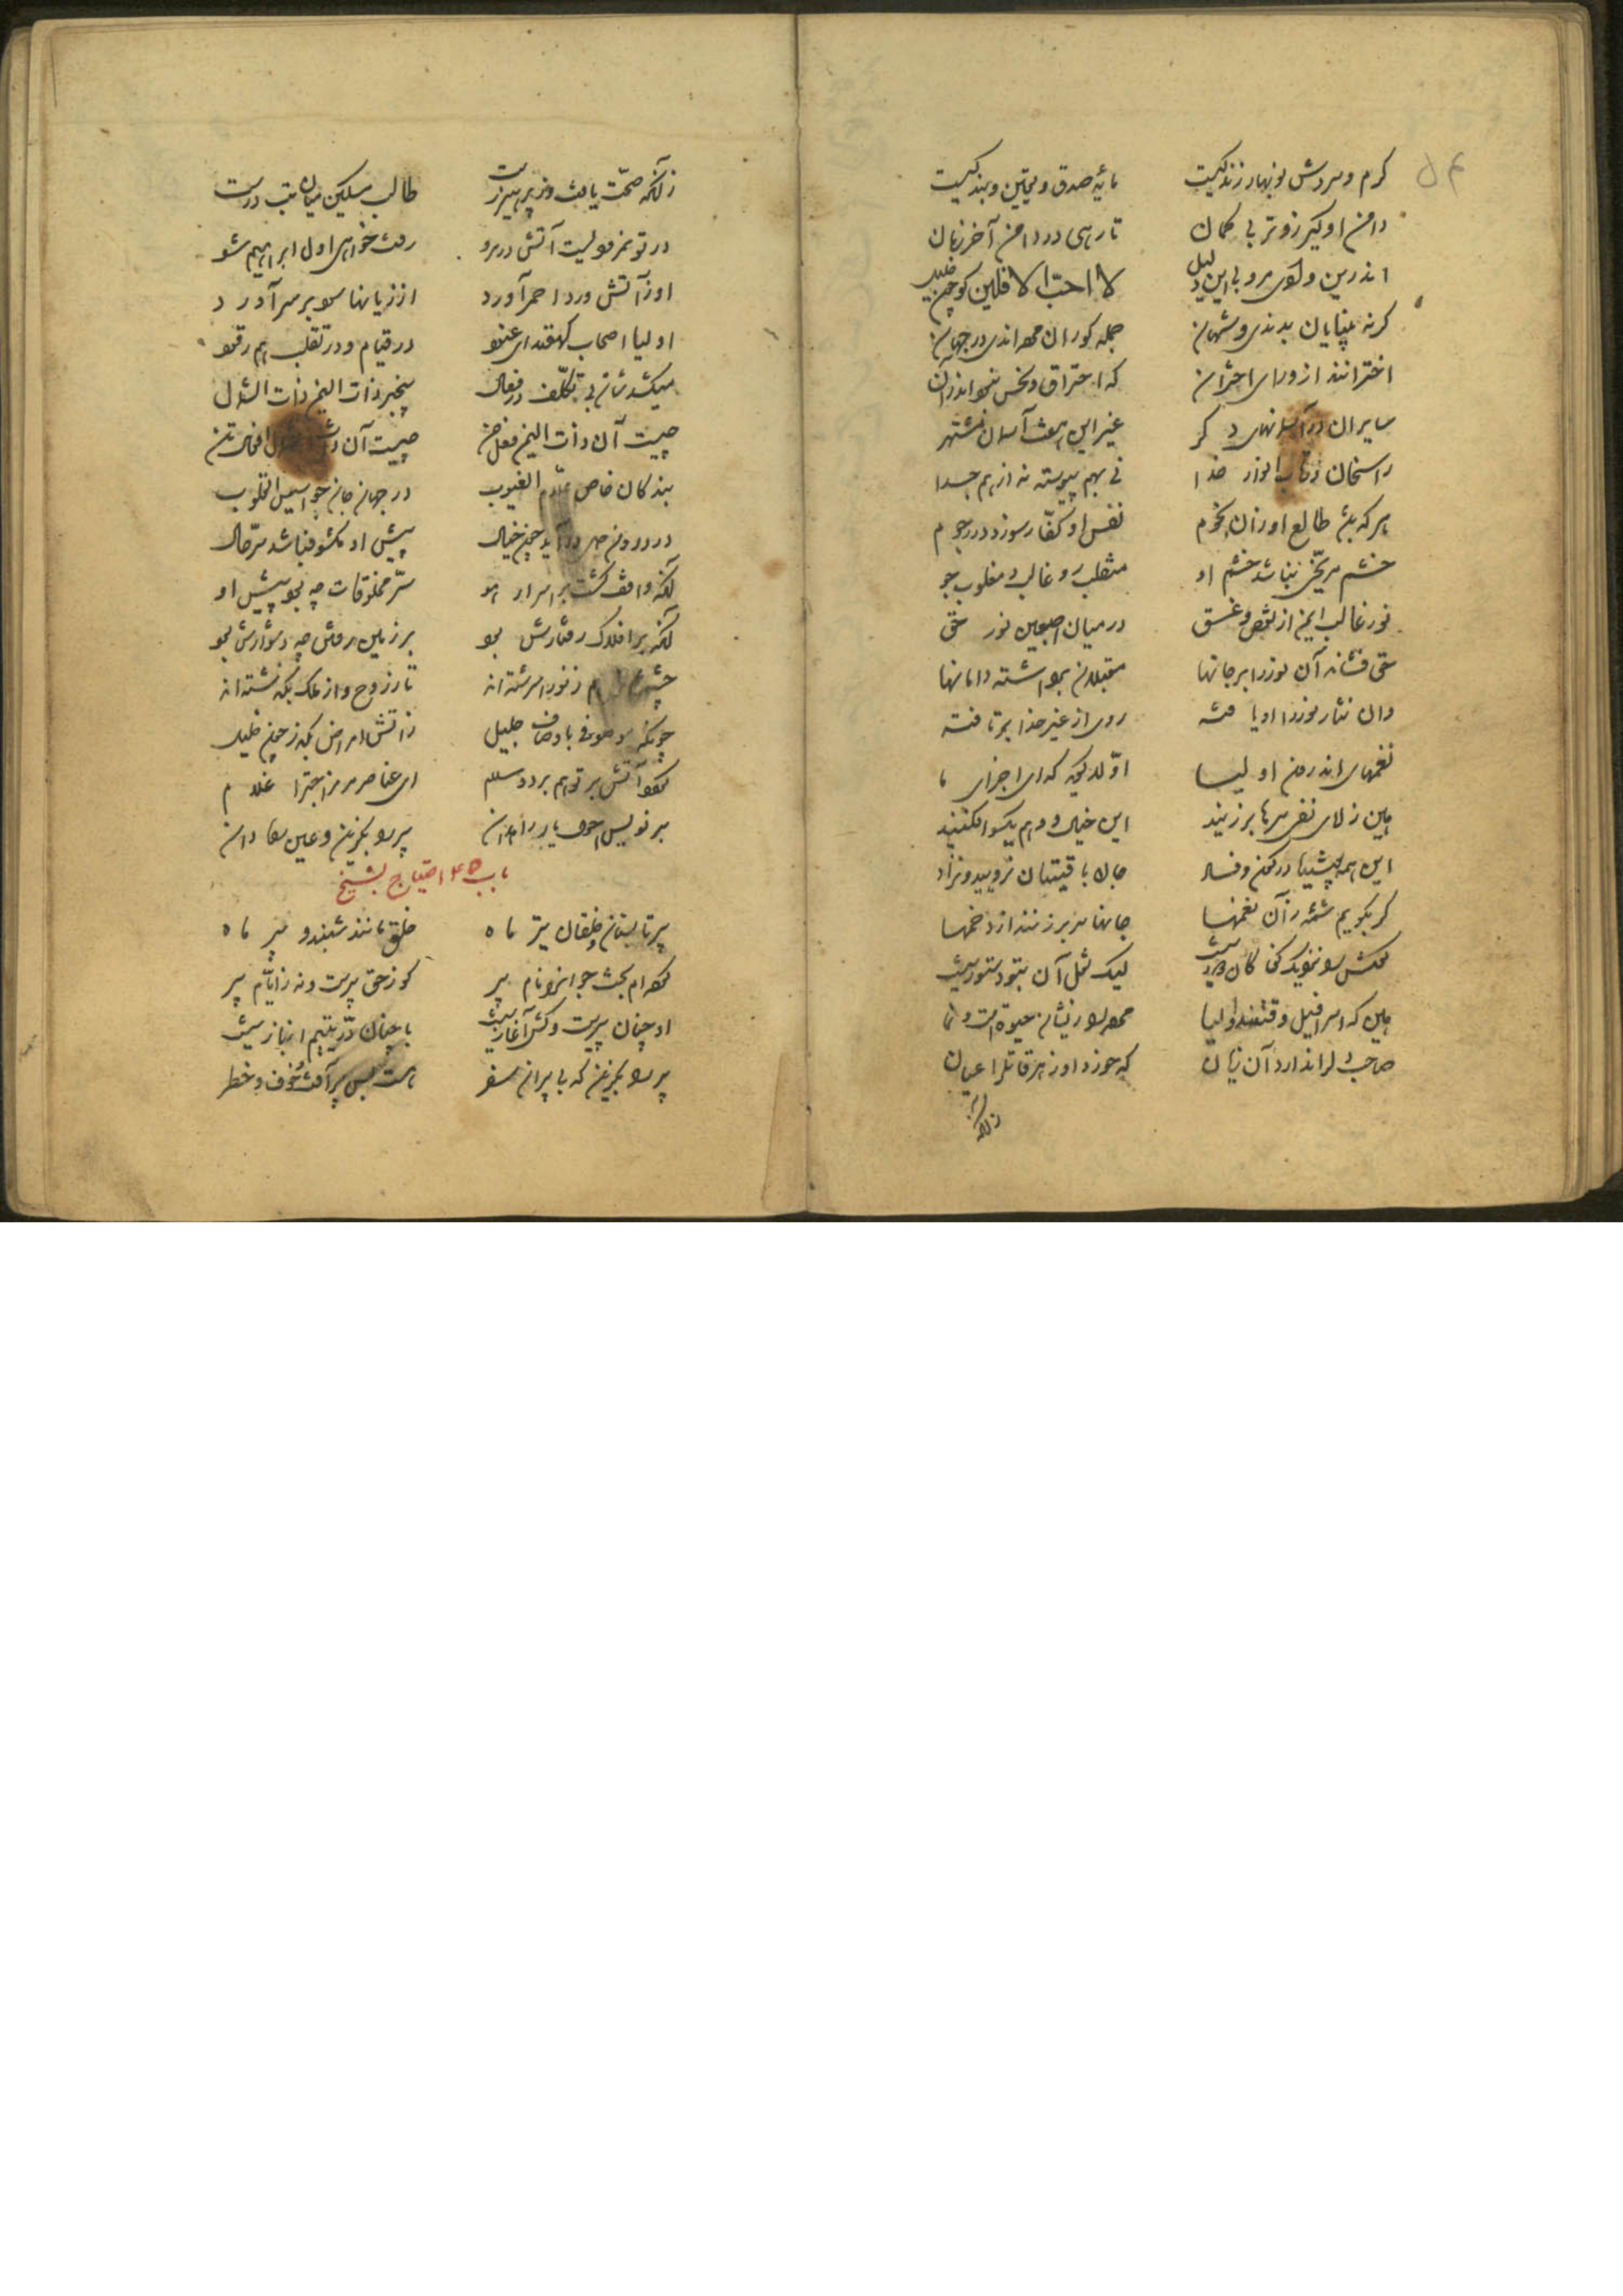 ۵۴
گرم و سردش نوبهار زندگیست مایهٔ صدق و یقین و بندگیست
دامن او گیر زوتر بی گمان تا رهی در دامن آخر زمان
اندرین وادی مرو بی این دلیل لا احب الافلین گو چون خلیل
گرنه بینایان بدندی و شهان جمله کوران مرده اندی در جهان
اخترانند از ورای اختران که احتراق و نحس نبود اندر آن
سایران در آسمانهای دگر غیر این هفت آسمان مشتهر
راسخان در تاب انوار خدا نی بهم پیوسته نه از هم جدا
هر که باشد طالع او زان نجوم نفس او کفار سوزد در رجوم
خشم مریخی نباشد خشم او منقلب رو غالب و مغلوب خو
نور غالب ایمن از نقص و غسق در میان اصبعین نور حق
حق فشاند آن نور را بر جانها مقبلان برداشته دامانها
وان نثار نور را او یافته روی از غیر خدا برتافته
نغمهای اندرون اولیا اولا گوید که ای اجزای لا
هین ز لای نفی سرها برزنید این خیال و وهم یکسو افکنید
ای همه پوسیده در کون و فساد جان باقیتان نرویید و نزاد
گر بگویم شمهٔ زان نغمها جانها سر برزنند از دخمها
گوش را نزدیک کن کان دور نیست لیک نقل آن بتو دستور نیست
هین که اسرافیل وقتند اولیا مرده را زیشان حیوة است و نما
صاحب دل را ندارد آن زیان که خورد او زهر قاتل را عیان
زانکه
زانکه صحت یافت وز پرهیز رست طالب مسکین میان تب درست
در تو نمرودیست آتش در مرو رفت خواهی اول ابراهیم شو
او ز آتش ورد احمر آورد از زیانها سود بر سر آورد
اولیا اصحاب کهفند ای عنود در قیام و در تقلب هم رقود
میکشدشان بی تکلف در فعال بیخبر ذات الیمین ذات الشمال
چیست آن ذات الیمین فعل حسن چیست آن ذات الشمال افعال تن
بندگان خاص علام الغیوب در جهان جان جواسیس القلوب
در درون دل درآید چون خیال پیش او مکشوف باشد سر حال
آنکه واقف گشت بر اسرار هو سر مخلوقات چه بود پیش او
آنکه بر افلاک رفتارش بود بر زمین رفتن چه دشوارش بود
ز نور اسرشته اند تا ز روح و از ملک بگذشته اند
چونکه موصوفی باوصاف جلیل زاتش امراض بگذر چون خلیل
گردد آتش بر تو هم برد و سلام ای عناصر مر مزاجت را غلام
بر نویس احوال پیر راه دان پیر را بگزین و عین راه دان
باب ۴۵ احتیاج بشیخ
پیر تابستان و خلقان تیر ماه خلق مانند شبند و پیر ماه
کرده ام بخت جوان را نام پیر کو ز حق پیرست و نه ز ایام پیر
او چنان پیریست کش آغاز نیست با چنان در یتیم انباز نیست
پیر را بگزین که بی پیر این سفر هست بس پر آفت و خوف و خطر